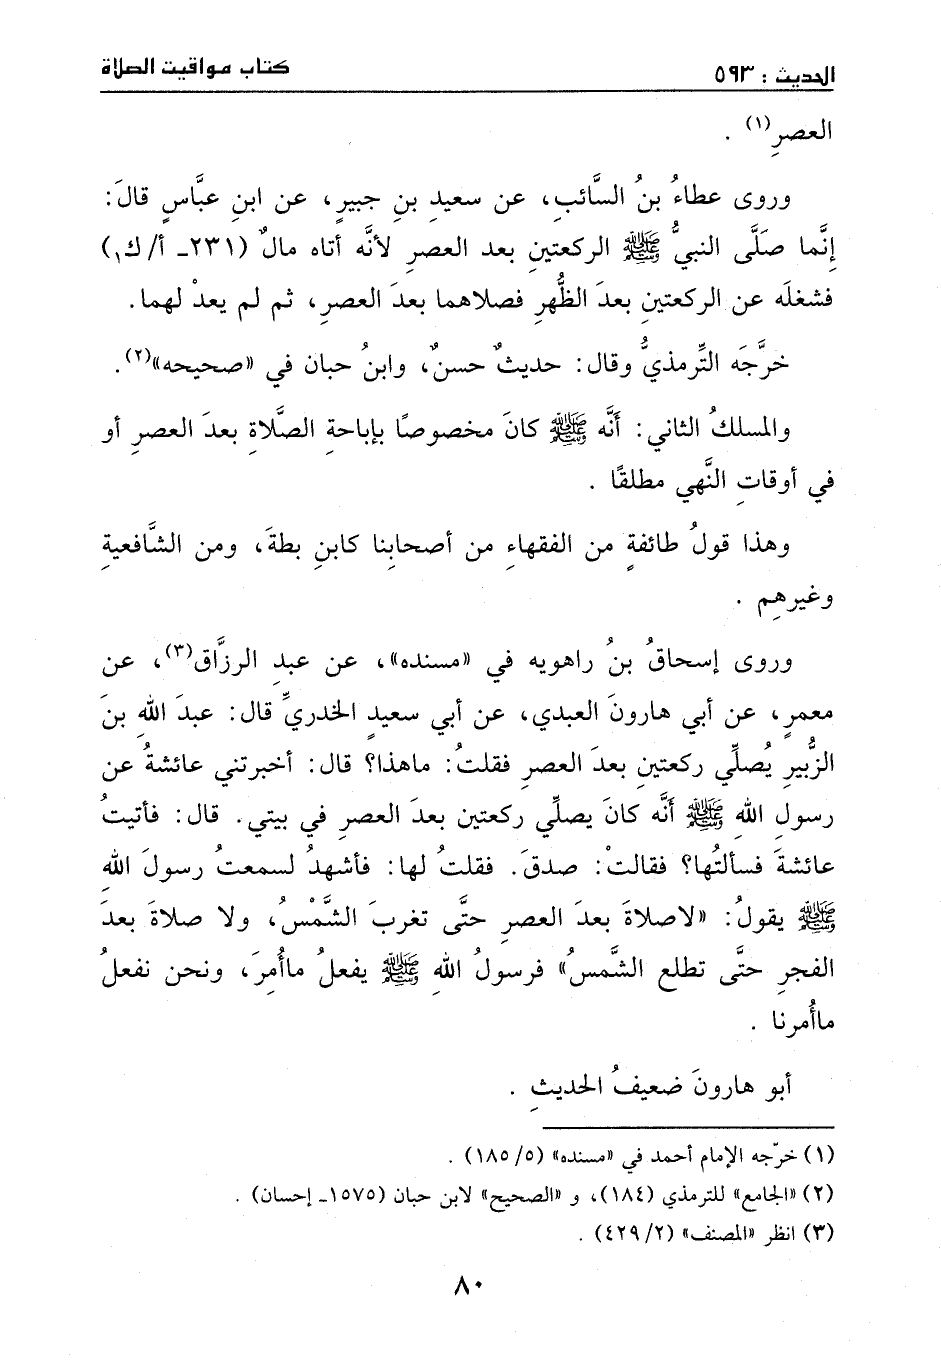 الحديث : ٥٩٣
كتاب مواقيت الصلاة
العصرِ(١) .
وروى عطاءُ بنُ السَّائبِ، عن سعيدِ بنِ جبيرٍ، عن ابنِ عبَّاسٍ قالَ:
إنَّما صَلَّى النبيُّ ﷺ الركعتينِ بعد العصرِ لأنَّه أتاه مالٌ (٢٣١ـ أ/ ك١)
فشغلَه عن الركعتينِ بعدَ الظُّهرِ فصلاهما بعدَ العصرِ، ثم لم يعدْ لهما.
خرَّجَه التِّرمذيُّ وقال: حديثٌ حسنٌ، وابنُ حبان في «صحيحه»(٢).
والمسلكُ الثاني: أَنَّه ﷺ كانَ مخصوصًا بإباحةِ الصَّلاةِ بعدَ العصرِ أو
في أوقاتِ النَّهي مطلقًا .
وهذا قولُ طائفةٍ من الفقهاءِ من أصحابِنا كابنِ بطةَ، ومن الشَّافعيةِ
وغيرهِم .
وروى إسحاقُ بنُ راهويه في «مسنده»، عن عبدِ الرزَّاق(٣)، عن
معمرٍ، عن أبي هارونَ العبدي، عن أبي سعيدٍ الخدريِّ قال: عبدَ اللهِ بنَ
الزُّبيرِ يُصلِّي ركعتينِ بعدَ العصرِ فقلتُ: ماهذا؟ قال: أخبرتني عائشةُ عن
رسولِ اللهِ ﷺ أنَّه كانَ يصلِّي ركعتين بعدَ العصرِ في بيتي. قال: فأتيتُ
عائشةَ فسألتُها؟ فقالتْ: صدقَ. فقلتُ لها: فأشهدُ لسمعتُ رسولَ اللهِ
ﷺ يقولُ: «لاصلاةَ بعدَ العصرِ حتَّى تغربَ الشَّمْسُ، ولا صلاةَ بعدَ
الفجرِ حتَّى تطلع الشَّمسُ» فرسولُ اللهِ ﷺ يفعلُ ماأُمرَ، ونحن نفعلُ
ماأُمرنا .
أبو هارونَ ضعيفُ الحديثِ .
(١) خرّجه الإمام أحمد في «مسنده» (٥/ ١٨٥) .
(٢) «الجامع» للترمذي (١٨٤)، و «الصحيح» لابن حبان (١٥٧٥ـ إحسان) .
(٣) انظر «المصنف» (٢/ ٤٢٩) .
٨٠